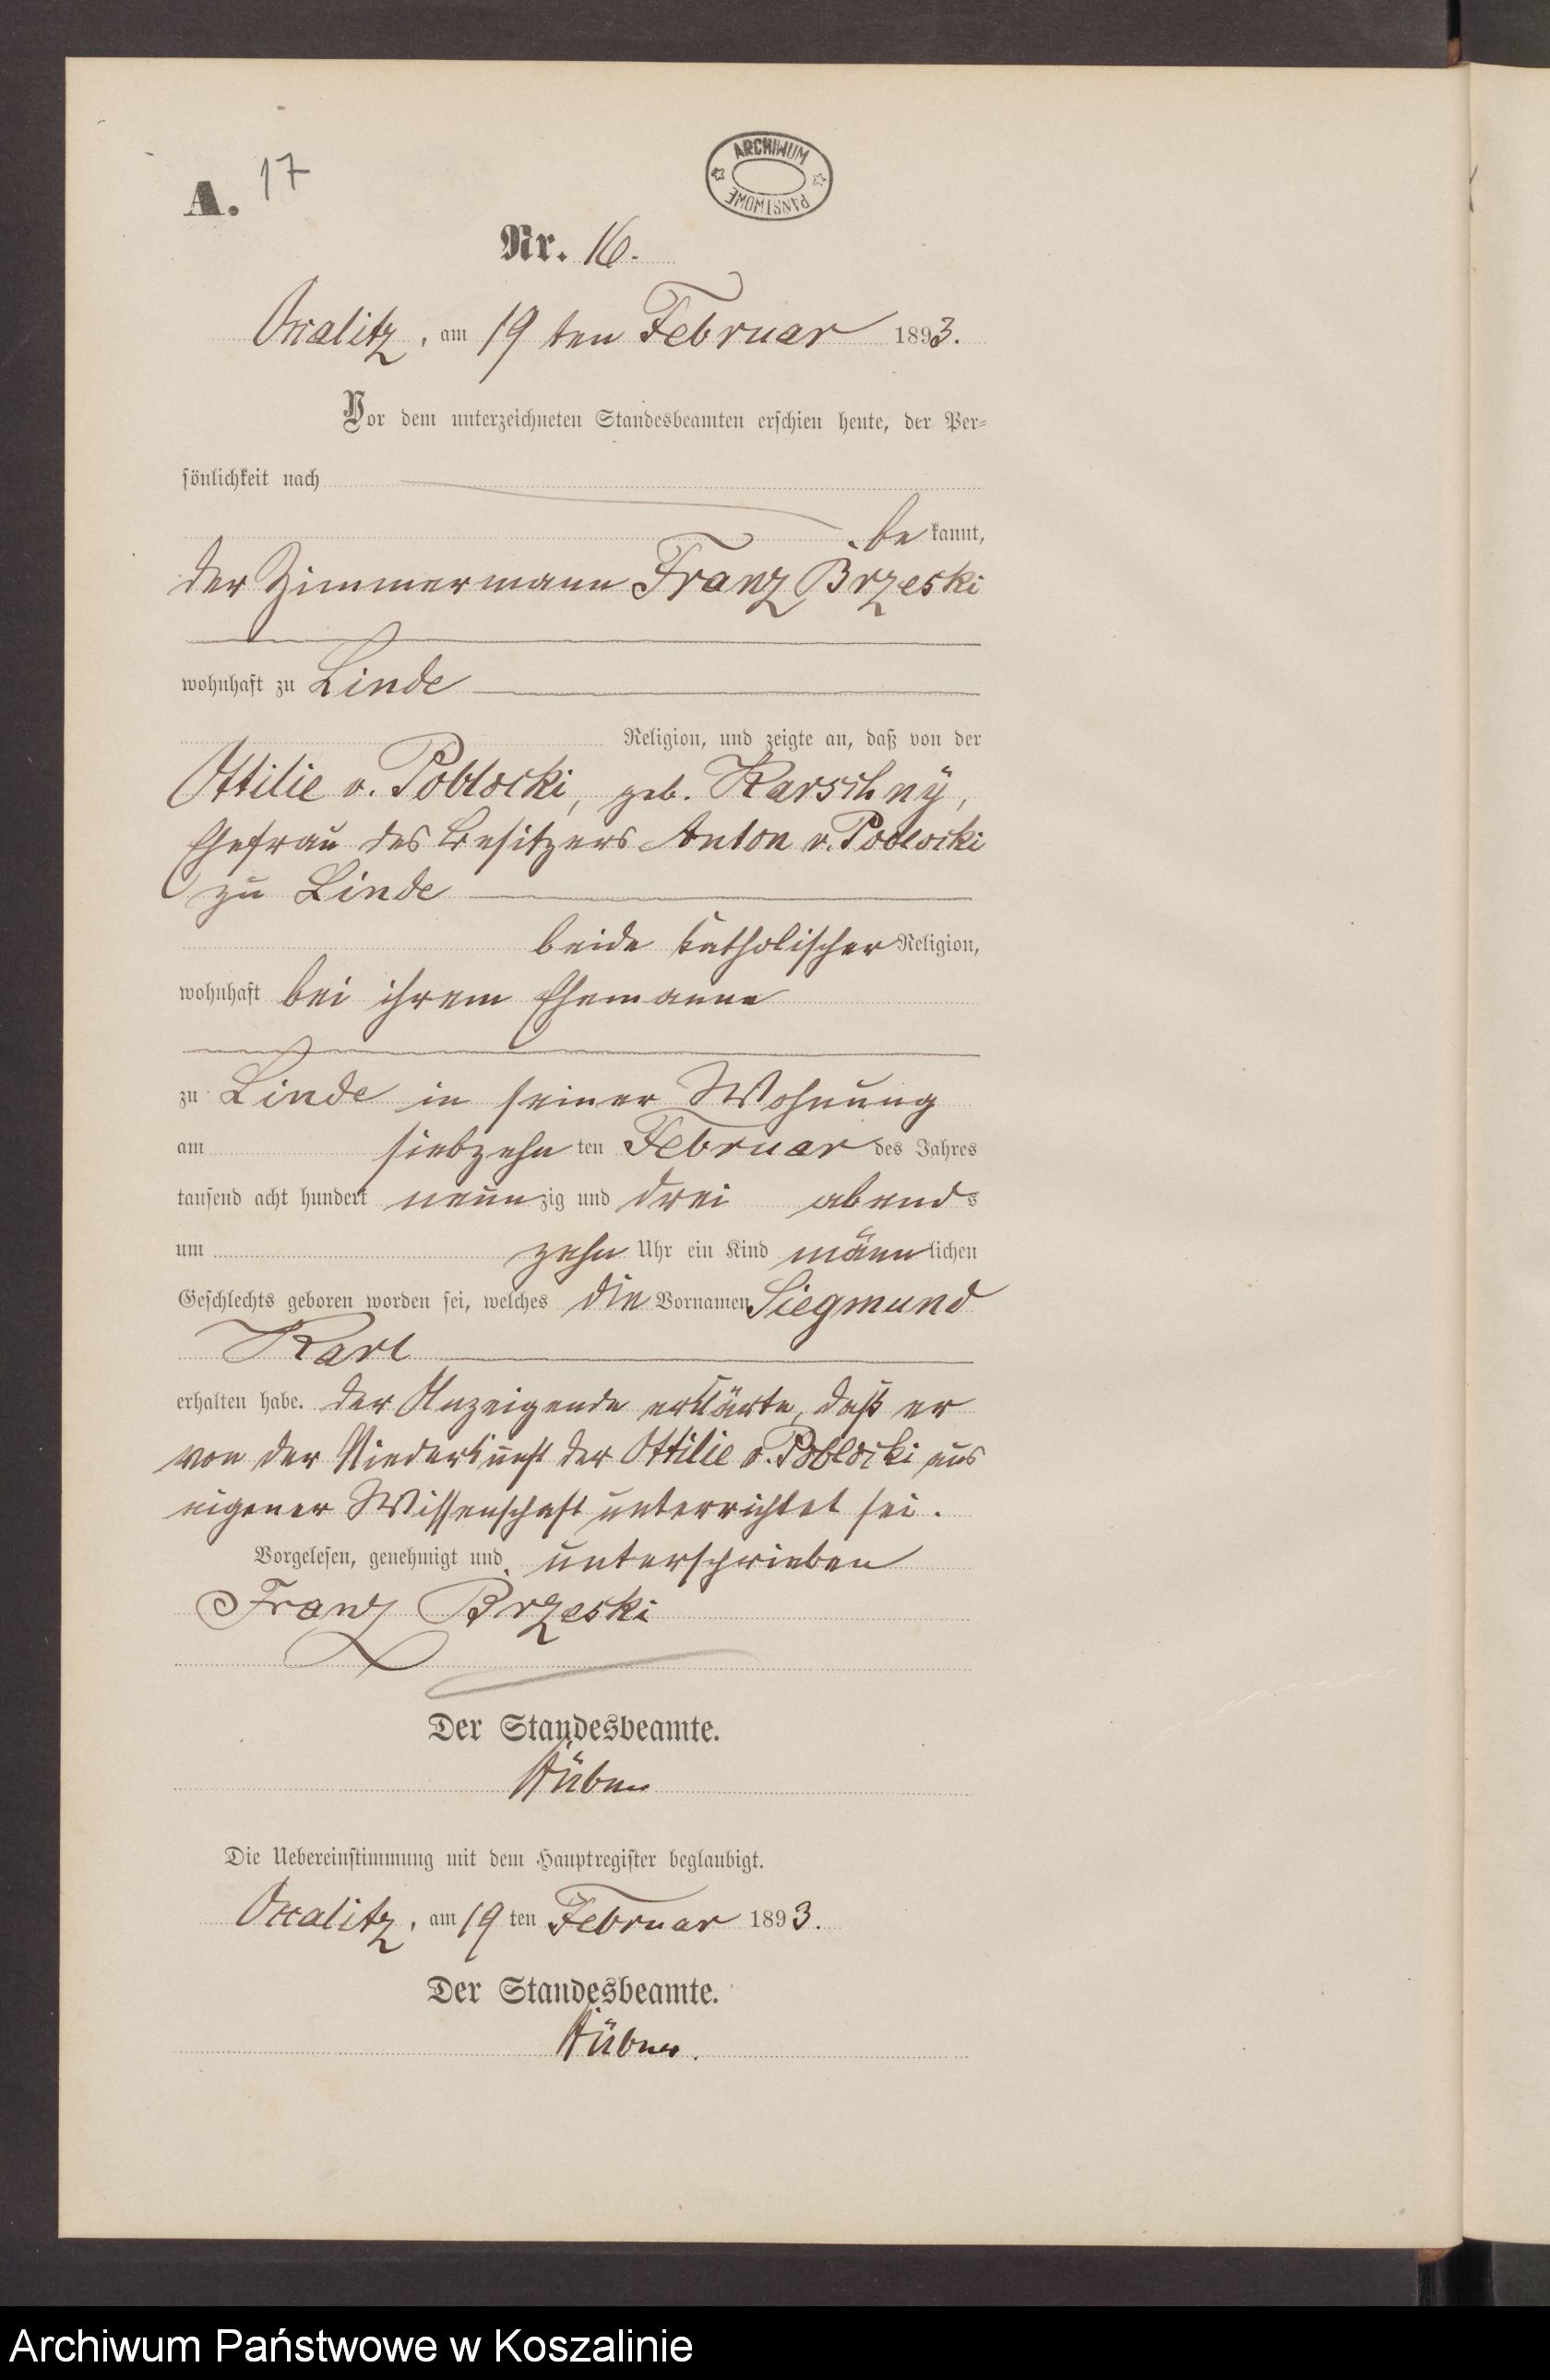 17
A.
ARCHIWUM PAŃSTWOWE
Nr. 16.
Occalitz, am 19 ten Februar 1893.
Vor dem unterzeichneten Standesbeamten erschien heute, der Per-
sönlichkeit nach
be kannt,
der Zimmermann Franz Brzeski
wohnhaft zu Linde
Religion, und zeigte an, daß von der
Ottilie v. Poblocki, geb. Karschny,
Ehefrau des Besitzers Anton v. Poblocki
zu Linde
beide katholischer Religion,
wohnhaft bei ihrem Ehemanne
zu Linde in seiner Wohnung
am siebzehn ten Februar des Jahres
tausend acht hundert neun zig und drei abend s
um zehn Uhr ein Kind männ lichen
Geschlechts geboren worden sei, welches die Vornamen Siegmund
Karl
erhalten habe. Der Anzeigende erklärte, daß er
von der Niederkunft der Ottilie v. Poblocki aus
eigener Wissenschaft unterrichtet sei.
Vorgelesen, genehmigt und unterschrieben
Franz Brzeski
Der Standesbeamte.
Hübner
Die Uebereinstimmung mit dem Hauptregister beglaubigt.
Occalitz, am 19 ten Februar 1893.
Der Standesbeamte.
Hübner.
Archiwum Państwowe w Koszalinie